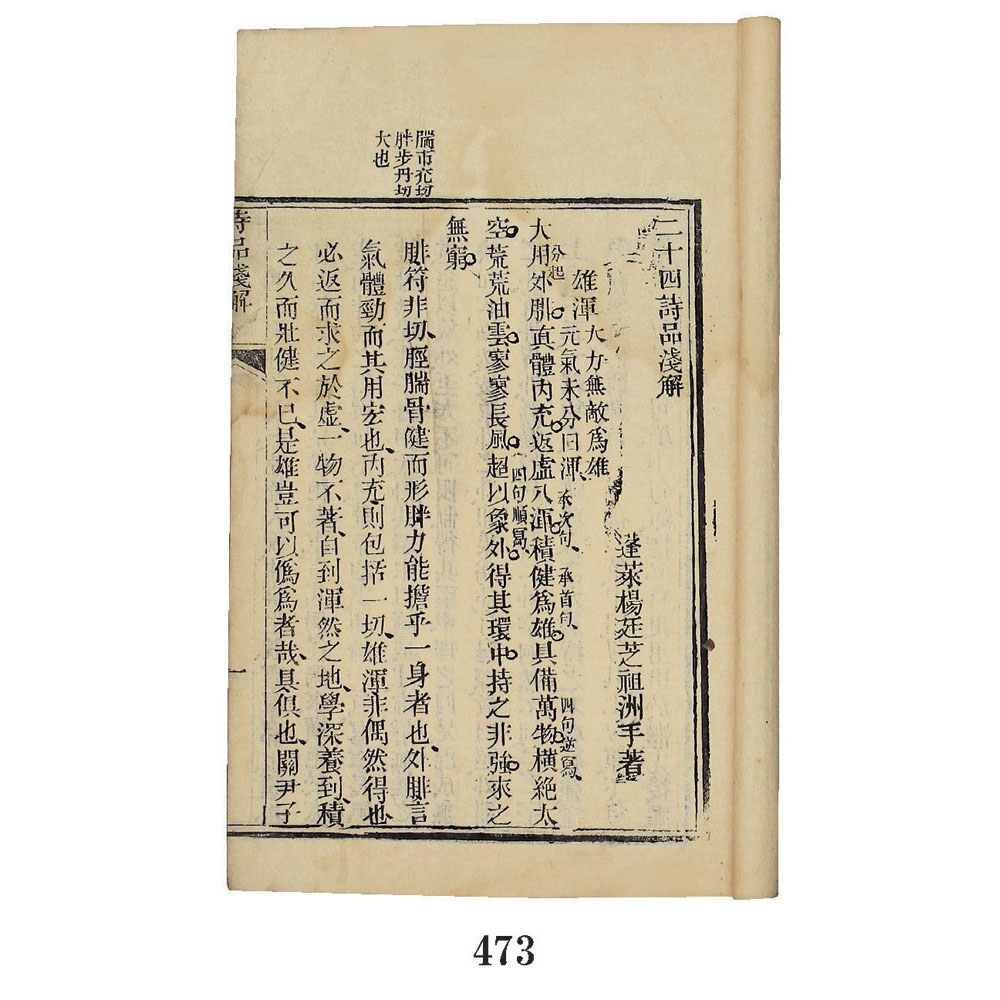 二十四詩品淺解
蓬萊楊廷芝祖洲手著
雄渾 大力無敵爲雄
元氣未分曰渾
大用外腓眞體內充返虛入渾積健爲雄具備萬物橫絕太
分起 承次句 承首句 四句逆寫
空荒荒油雲寥寥長風超以象外得其環中持之非強來之
四句順寫
無窮
腓符非切脛腨骨健而形胖力能擔乎一身者也外腓言
氣體勁而其用宏也內充則包括一切雄渾非偶然得也
必返而求之於虛一物不著自到渾然之地學深養到積
之久而壯健不已是雄豈可以僞爲者哉具俱也關尹子
腨市兗切
胖步丹切
大也
詩品淺解
一
473